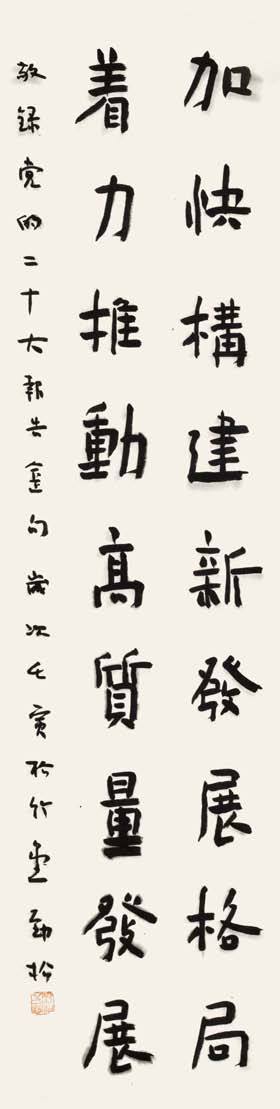 加快構建新發展格局
着力推動高質量發展
敬録党的二十大報告金句歲次壬寅於竹